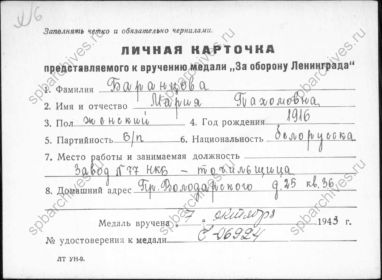 Заполнять четко и обязательно чернилами.
ЛИЧНАЯ КАРТОЧКА
представляемого к вручению медали „За оборону Ленинграда"
1. Фамилия Баранцова
2. Имя и отчество Мария Пахомовна
3. Пол женский 4. Год рождения 1916
5. Партийность б/п 6. Национальность белорусска
7. Место работы и занимаемая должность
Завод № 77 НКБ - точильщица
8. Домашний адрес Пр. Володарского д. 25 кв. 36.
Медаль вручена „7" октября 1943 г.
№ удостоверения к медали С-06924
ЛТ УН-9.
spbarchives.ru